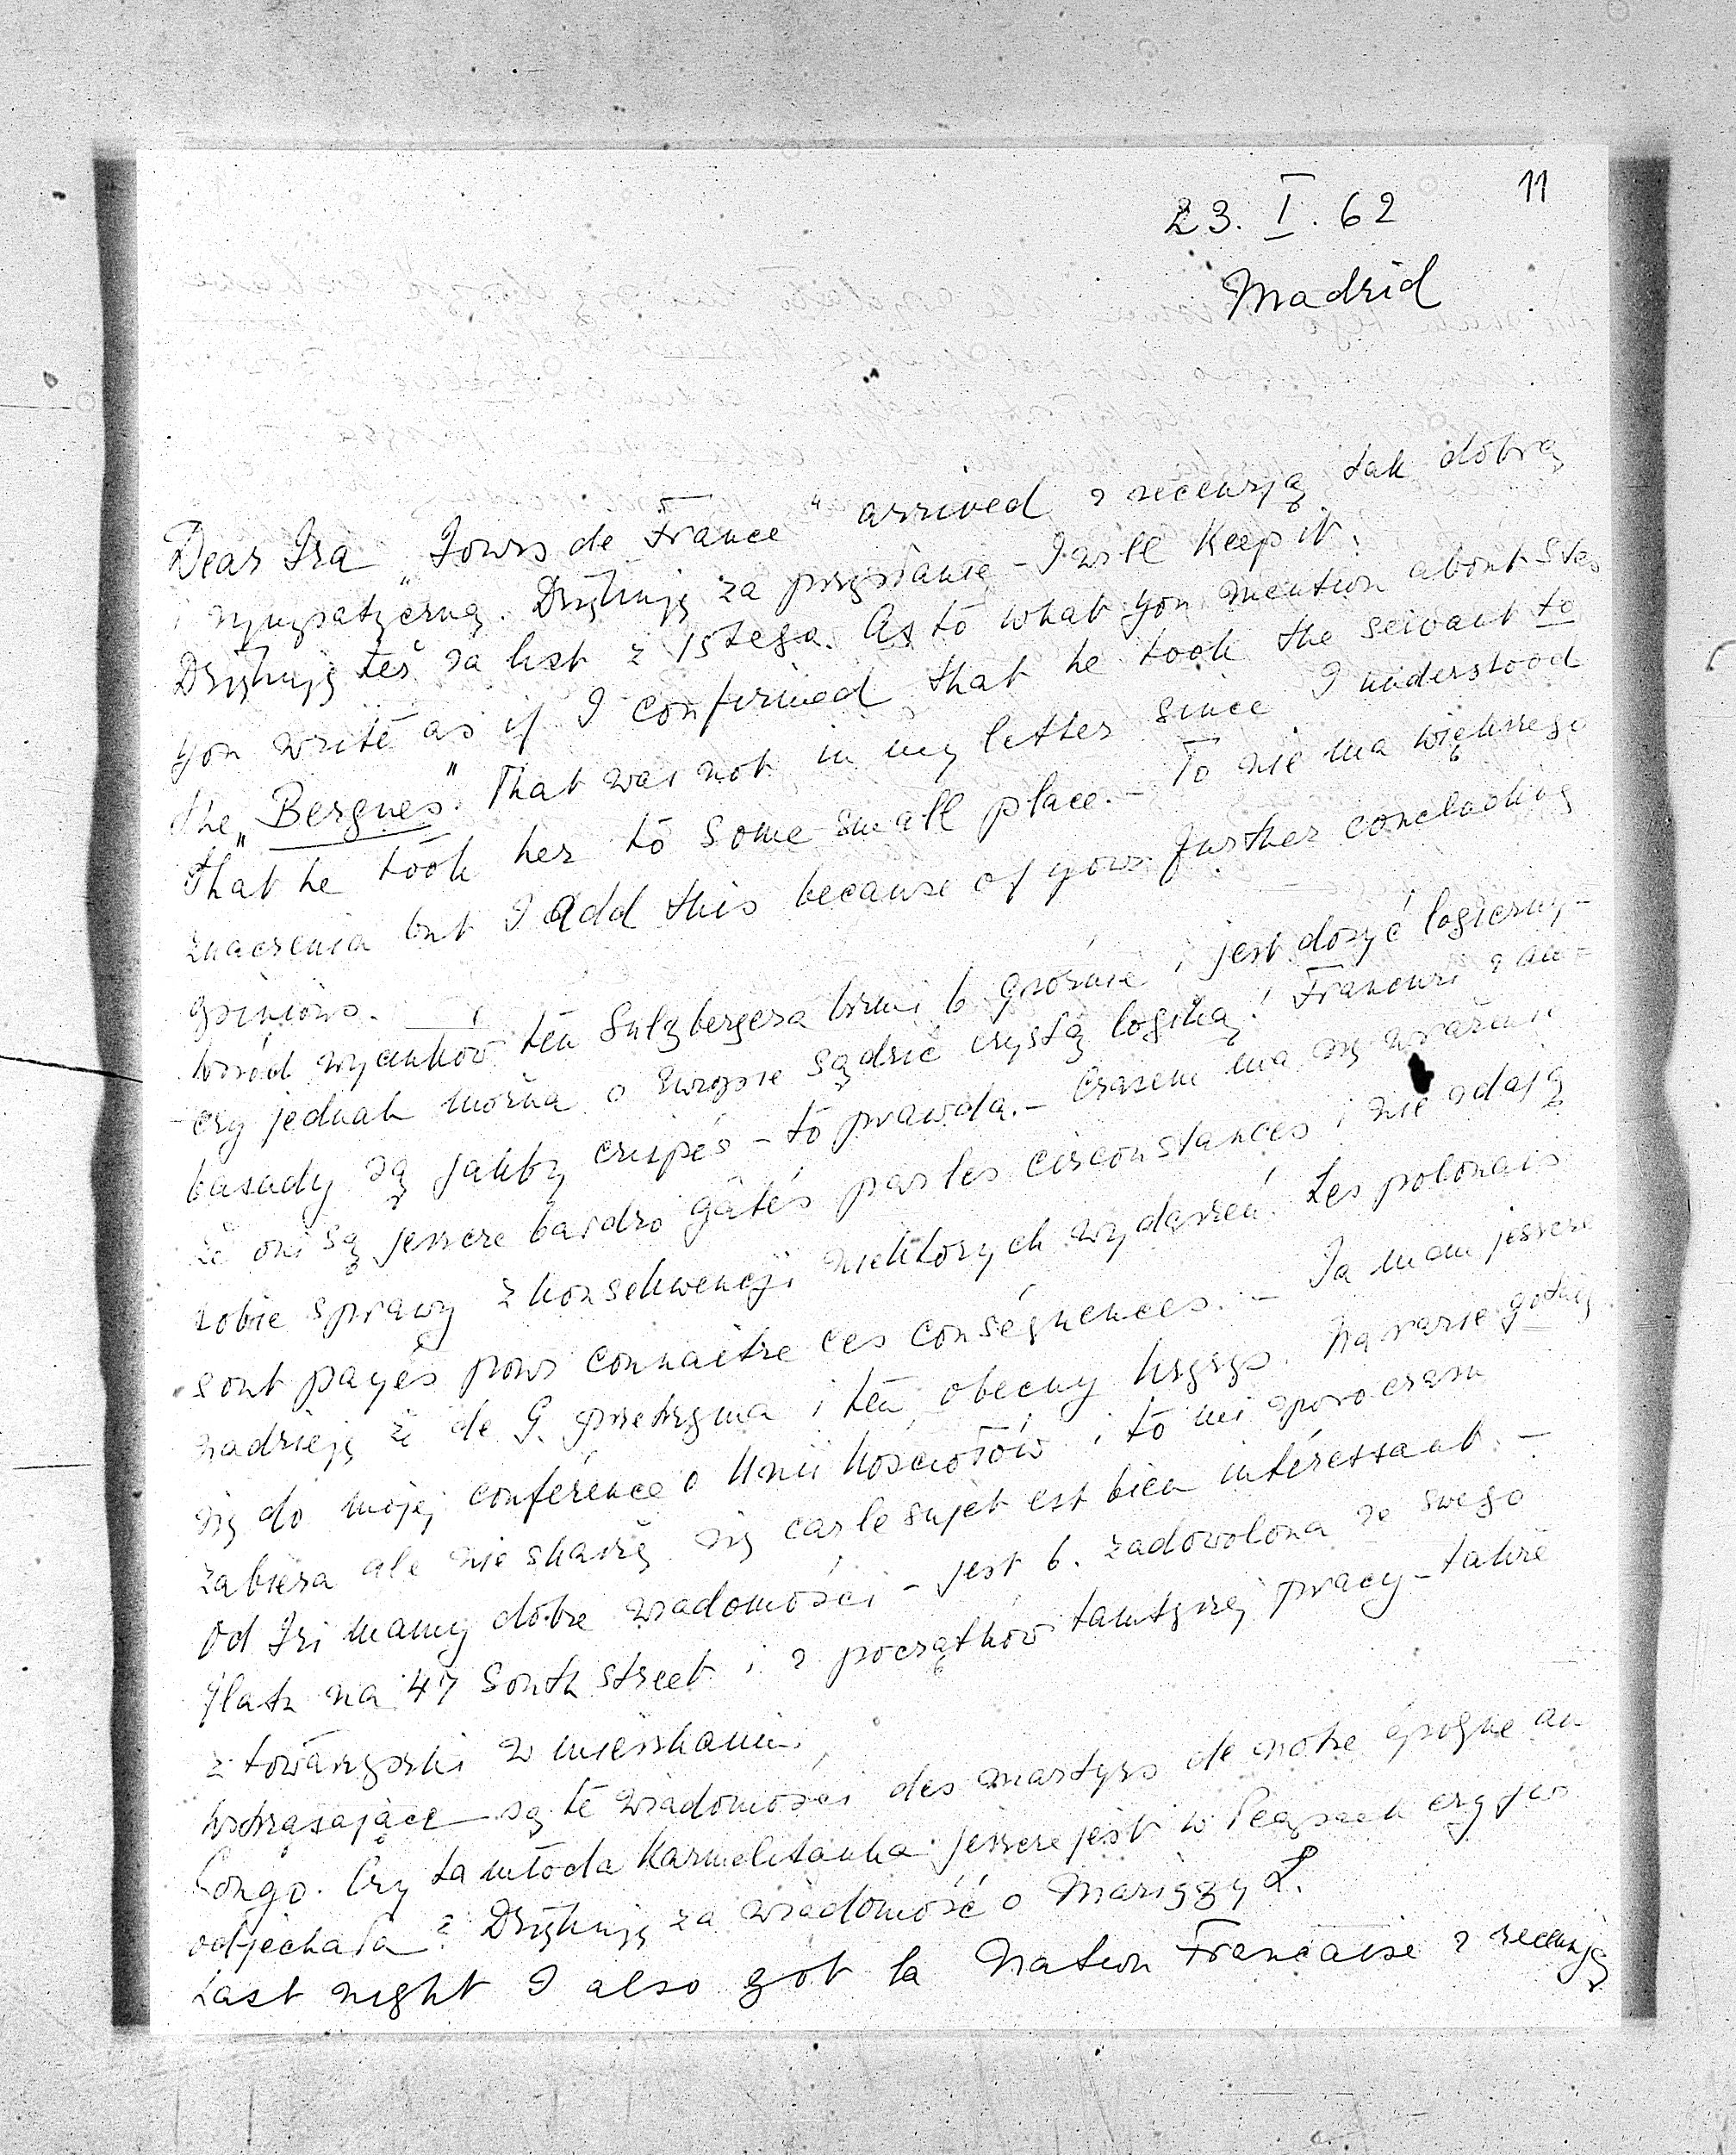 11
23. I. 62
Madrid
Dear Isa „Jours de France" arrived z recenzją tak dobrą
i sympatyczną. Dziękuję za przysłanie – I will keep it.
Dziękuję też za list z 15tego. As to what you mention about Stas
you write as if I confirmed that he took the servant to
the „Bergues". That was not in my letter since I understood
that he took her to some small place. – To nie ma większego
znaczenia but I add this because of your further concluding
opinions. –
wśród wycinków ten Sulzbergera brzmi b. groźnie i jest dosyć logiczny –
– czy jednak można o Europie sądzić czystą logiką! Francuzi z am-
basady są jakby crispés – to prawda. – Czasem ma się wrażenie
że oni są jeszcze bardzo gâtés par les circonstances i nie zdają
sobie sprawy z konsekwencji niektórych wydarzeń. Les polonais
sont payés pour connaitre ces conséquences. – Ja mam jeszcze
nadzieję że de G. przetrzyma i ten obecny kryzys. Na razie gotuję
się do mojej conférence o Unii Kościołów i to mi sporo czasu
zabiera ale nie skarżę się car le sujet est bien intéressant. –
Od Isi mamy dobre wiadomości – jest b. zadowolona ze swego
flatu na 47 South street i z początków tamtejszej pracy – także
z towarzyszki w mieszkaniu.
Wstrząsające są te wiadomości des martyrs de notre époque au
Congo. Czy ta młoda Karmelitanka jeszcze jest w czy już
odjechała? Dziękuję za wiadomość o L.
Last night I also got la Nation Francaise z recenzją